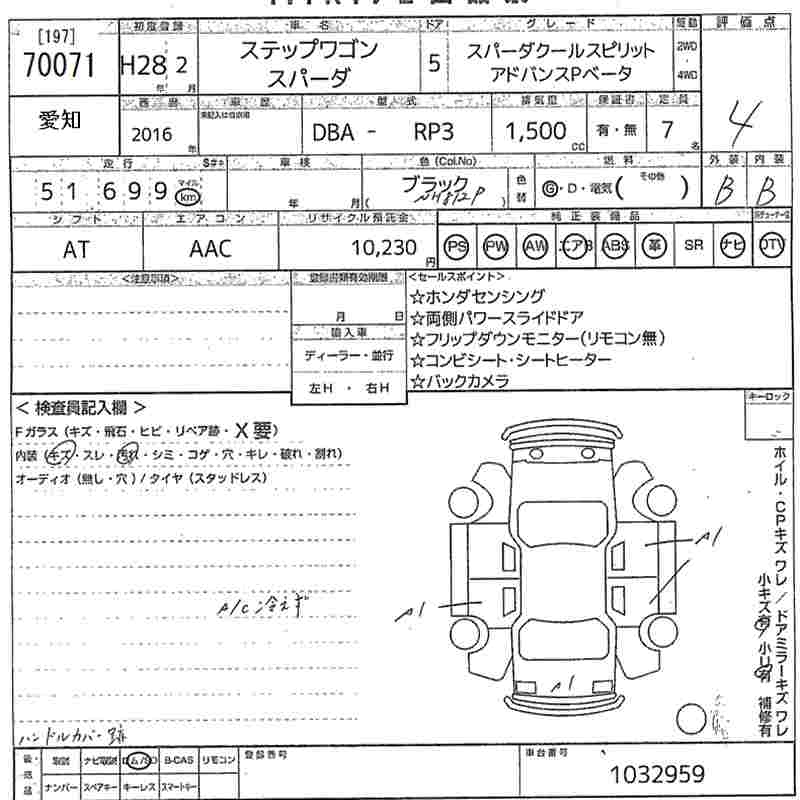 [197]
70071
初度登録
H28 2
年 月
車名
ステップワゴン
スパーダ
ドア
5
グレード
スパーダクールスピリット
アドバンスPベータ
駆動
2WD
4WD
評価点
4
愛知
西暦
2016
年
車歴
未記入は自家用
型式
DBA - RP3
排気量
1,500
CC
保証書
有・無
定員
7
名
走行
51699
マイル
km
車検
年 月
色(Col.No)
ブラック
NH812P
色替
燃料
G・D・電気( その他 )
外装
B
内装
B
シフト
AT
エアコン
AAC
リサイクル預託金
10,230
円
純正装備品
PS PW AW エアB ABS 革 SR ナビ DTV
<注意事項>
登録書類有効期限
月 日
輸入車
ディーラー・並行
左H・右H
<セールスポイント>
☆ホンダセンシング
☆両側パワースライドドア
☆フリップダウンモニター(リモコン無)
☆コンビシート・シートヒーター
☆バックカメラ
＜検査員記入欄＞
Fガラス(キズ・飛石・ヒビ・リペア跡・X要)
内装(キズ・スレ・汚れ・シミ・コゲ・穴・キレ・破れ・割れ)
オーディオ(無し・穴)/タイヤ(スタッドレス)
A/C 冷えず
ハンドルカバー跡
キーロック
A1
A1
A1
ホイル・CPキズワレ/ドアミラーキズワレ
小キズ有/小凹有 補修有
後送品
取説 ナビ取説 B-CAS リモコン
ナンバー スペアキー キーレス スマートキー
登録番号
車台番号
1032959